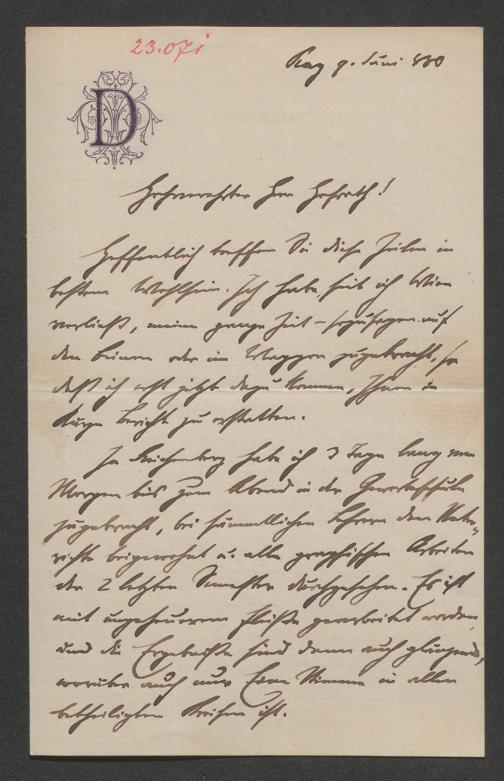 23.071
Prag 9. Juni 880
D
Hochverehrter Herr Hofrath!
Hoffentlich treffen Sie diese Zeilen in
bestem Wohlsein. Ich habe, seit ich Wien
verließ, meine ganze Zeit – sozusagen auf
den Beinen oder im Waggon zugebracht, so
daß ich erst jetzt dazu komme, Ihnen in
Kürze Bericht zu erstatten.
In Reichenberg habe ich 3 Tage lang vom
Morgen bis zum Abend in der Gewerbeschule
zugebracht, bei sämmtlichen Lehrern dem Unter-
richte beigewohnt u. alle graphischen Arbeiten
der 2 letzten Semester durchgesehen. Es ist
mit ungeheurem Fleiße gearbeitet worden
und die Ergebniße sind denn auch glänzend,
worüber auch nur Eine Stimme in allen
betheiligten Kreisen ist.